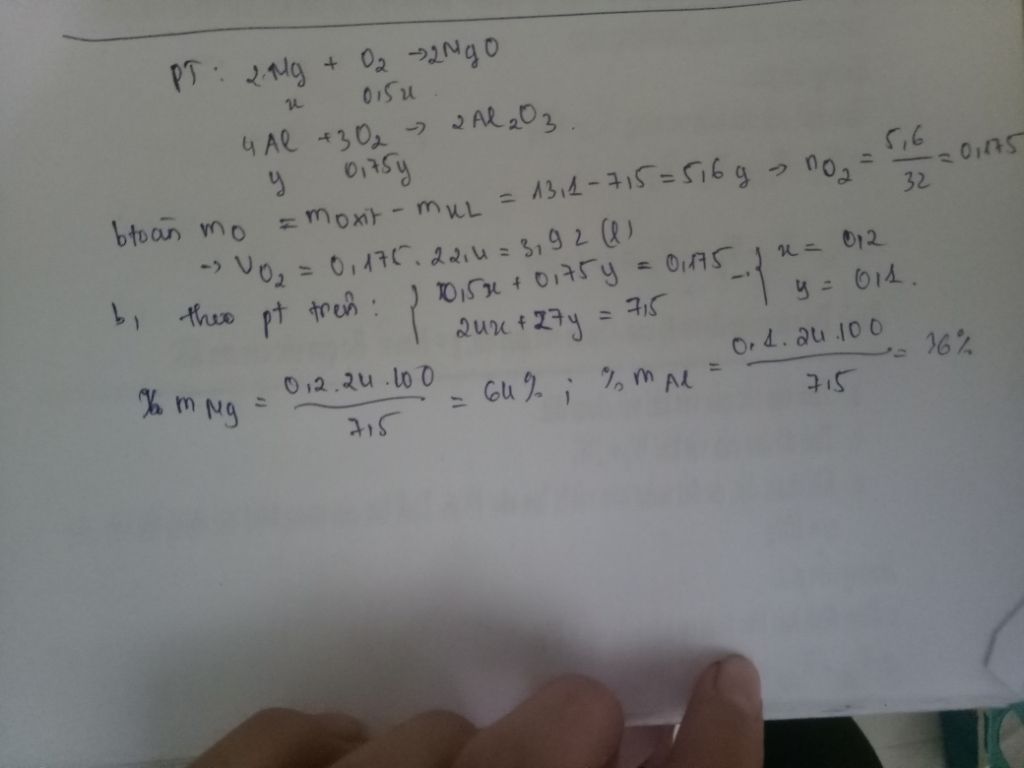 PT: 2Mg + O2 → 2MgO
x 0,5x
4Al + 3O2 → 2Al2O3.
y 0,75y
btoàn mO = moxit - mKL = 13,1 - 7,5 = 5,6 g → nO2 = 5,6/32 = 0,175
→ VO2 = 0,175. 22,4 = 3,92 (l)
b, theo pt trên: { 0,5x + 0,75y = 0,175 → { x = 0,2
24x + 27y = 7,5 y = 0,1.
% mMg = 0,2.24.100/7,5 = 64% ; % mAl = 0,1.24.100/7,5 = 36%